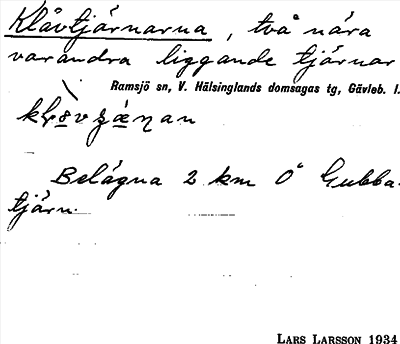 Klåvtjärnarna, två nära
varandra liggande tjärnar
Ramsjö sn, V. Hälsinglands domsagas tg, Gävleb. l.
Belägna 2 km O Gubba-
tjärn.
LARS LARSSON 1934